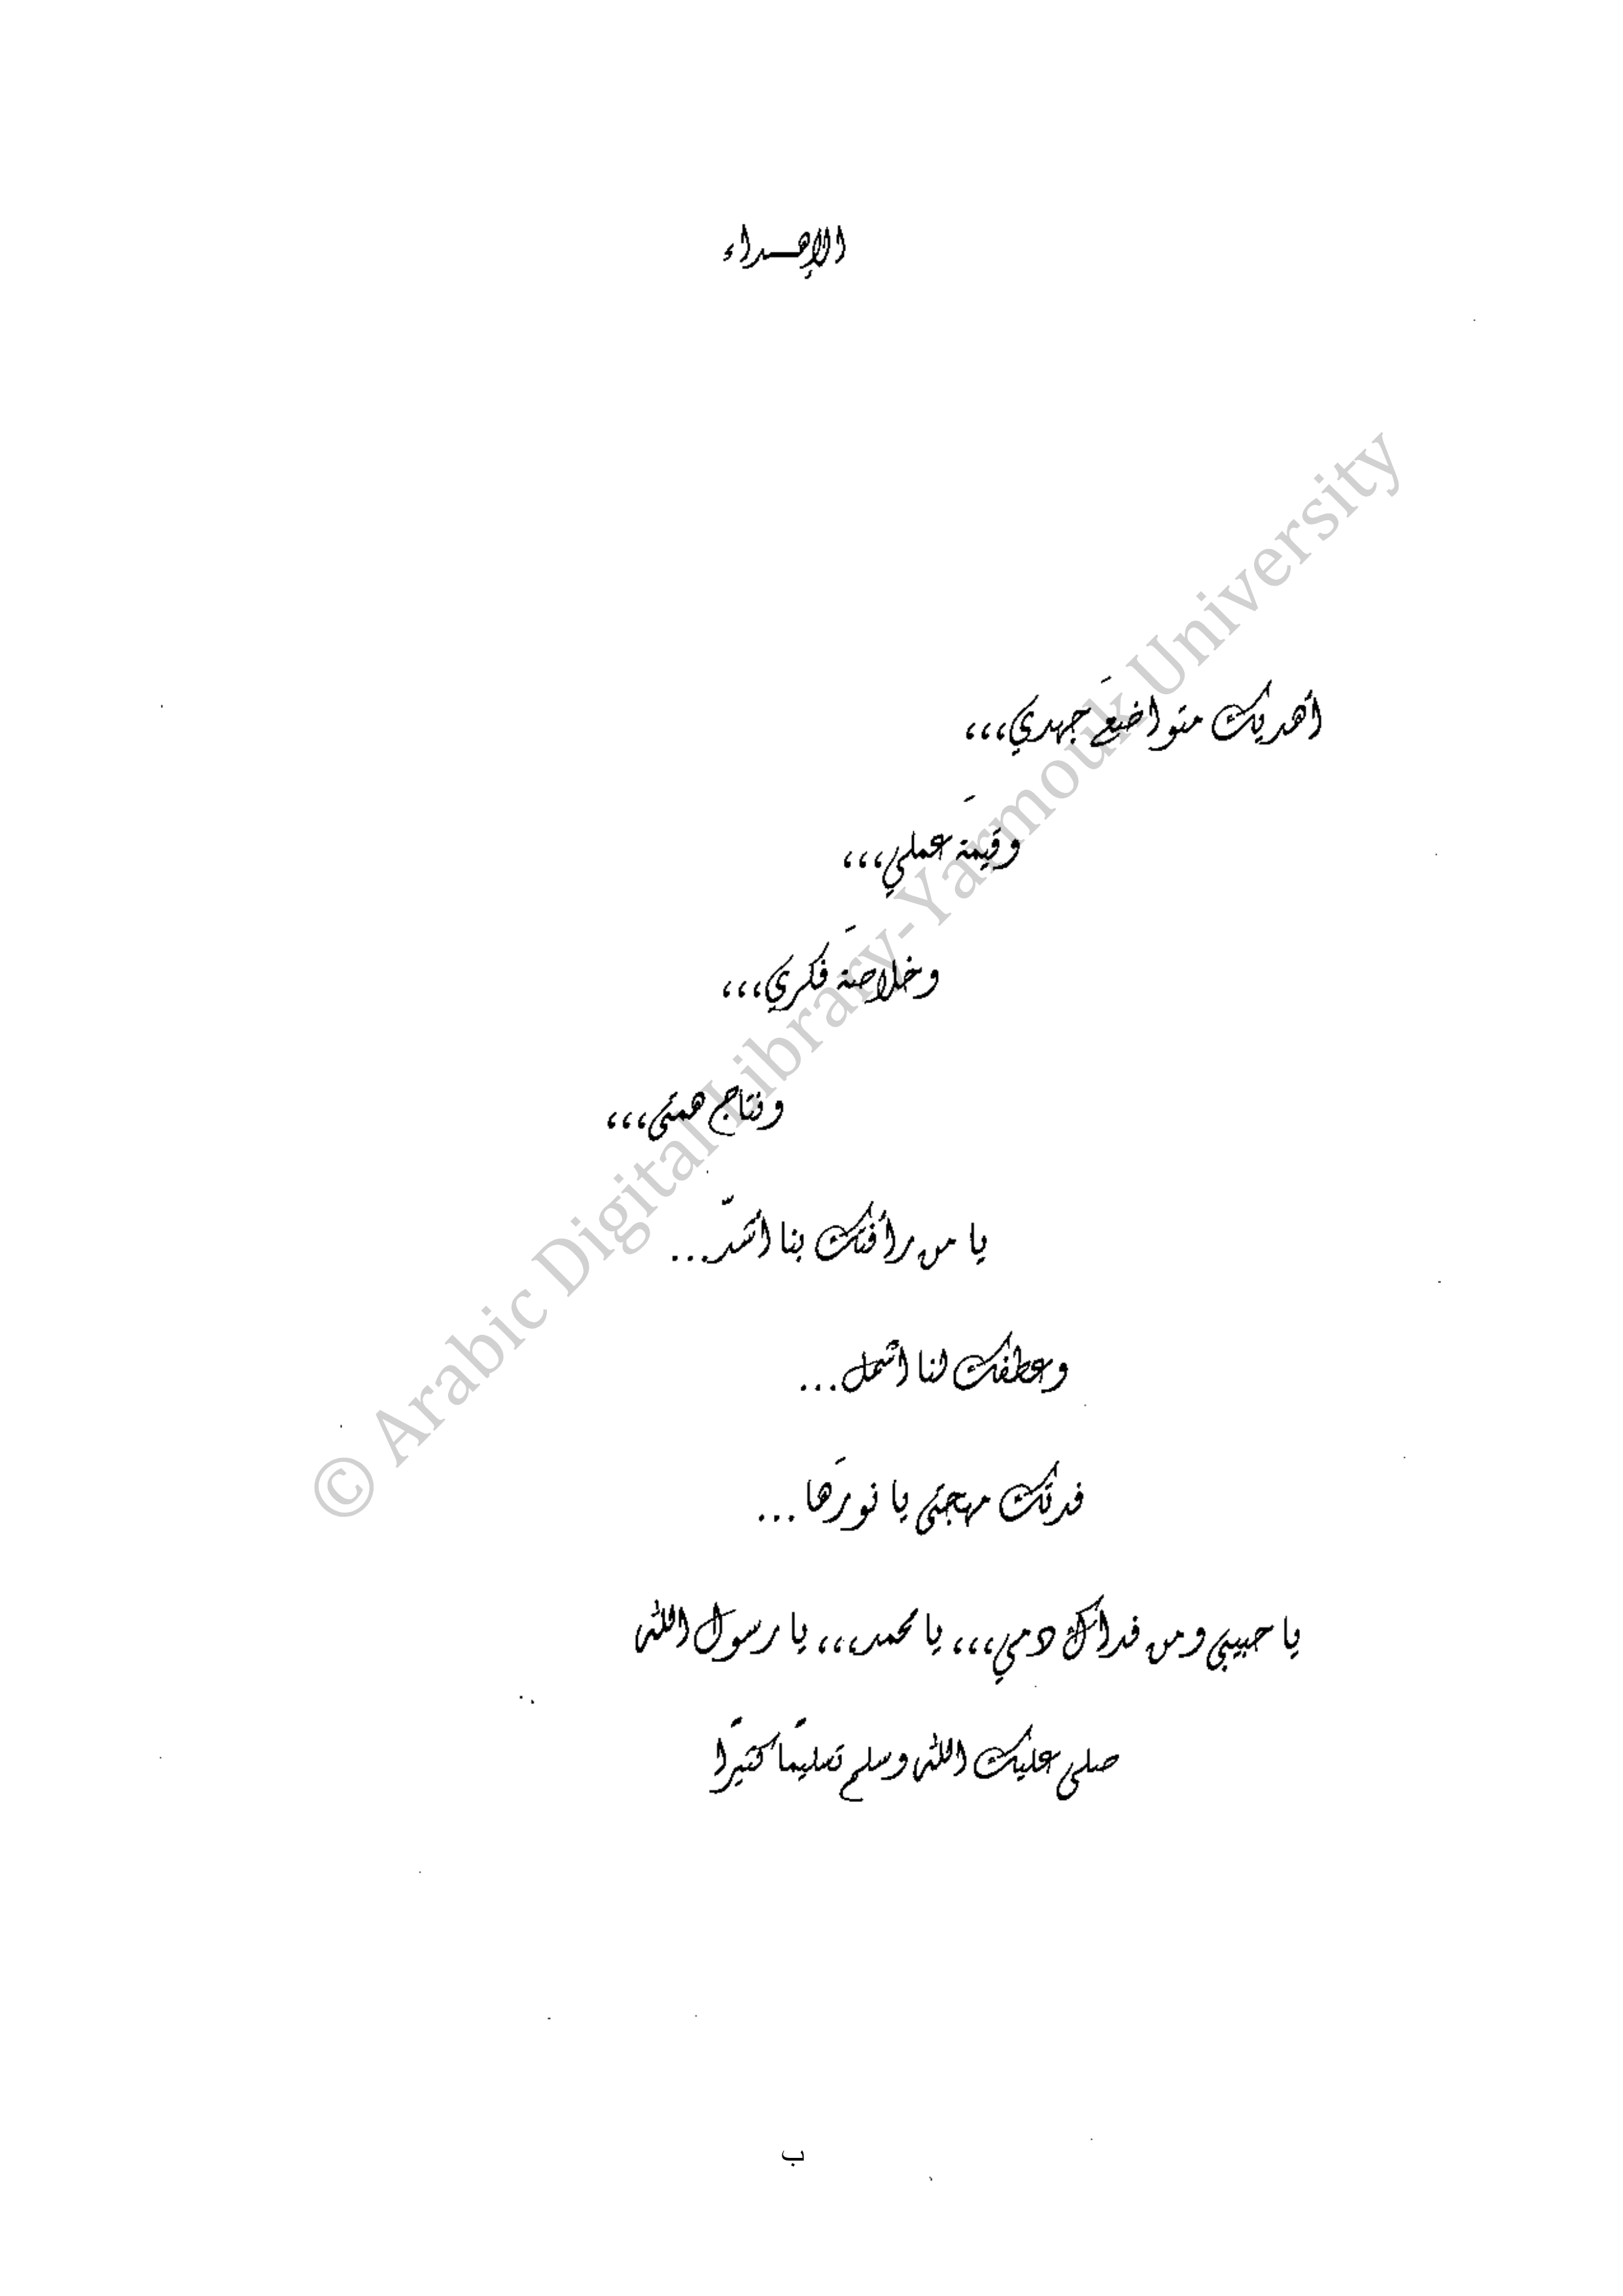 الإهـداء
أهديك متواضعَ جهدي،،،
وقيمةَ عملي،،،
وخلاصةَ فكري،،،
ونتاج همتي،،،
يا من رأفتك بنا أشدّ...
وعطفك لنا أشمل...
فدتك مهجتي يا نورَها...
يا حبيبي ومن فداك دمي،،، يا محمد،،، يا رسول الله
صلى عليك الله وسلم تسليمًا كثيرًا
ب
© Arabic Digital Library-Yarmouk University